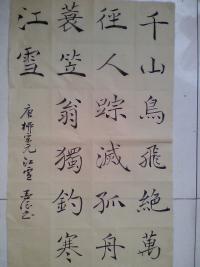 千山鳥飛絕萬
徑人踪滅孤舟
蓑笠翁獨釣寒
江雪
唐柳宗元江雪